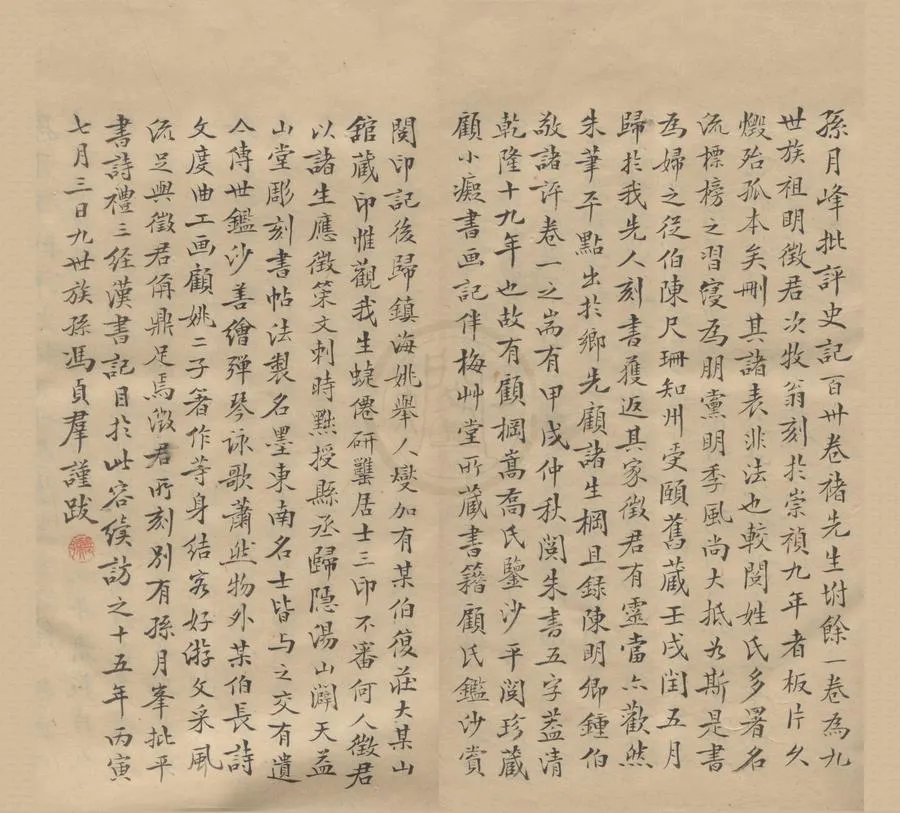 孫月峰批評史記百卅卷褚先生坿餘一卷為九
世族祖明徵君次牧翁刻於崇禎九年者板片久
燬殆孤本矣刪其諸表非法也較閱姓氏多署名
流標榜之習寖為朋黨明季風尚大抵如斯是書
為婦之從伯陳尺珊知州受頤舊藏壬戌閏五月
歸於我先人刻書獲返其家徵君有靈當亦歡然
朱筆平點出於鄉先顧諸生棡且錄陳明卿鍾伯
敬諸評卷一之耑有甲戌仲秋閱朱書五字葢清
乾隆十九年也故有顧棡嵩喬氏鑒沙平閱珍藏
顧小癡書画記伴梅艸堂所藏書籍顧氏鑑沙賞
閱印記後歸鎮海姚舉人燮加有某伯復莊大某山
舘藏印惟觀我生蜨僊研鼟居士三印不審何人徵君
以諸生應徵策文刺時黜授縣丞歸隱湯山闢天益
山堂彫刻書帖法製名墨東南名士皆与之交有遺
亼傳世鑑沙善繪彈琴詠歌蕭然物外某伯長詩
文度曲工画顧姚二子箸作等身結客好游文采風
流足與徵君侔鼎足焉徵君所刻別有孫月峯批平
書詩禮三經漢書記目於此容續訪之十五年丙寅
七月三日九世族孫馮貞羣謹跋